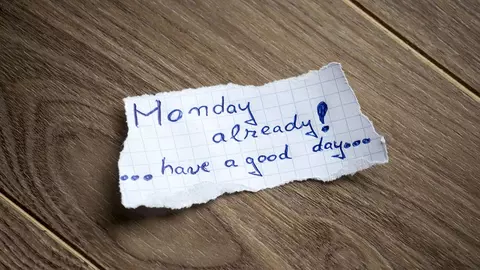 Monday
already!
... have a good day...